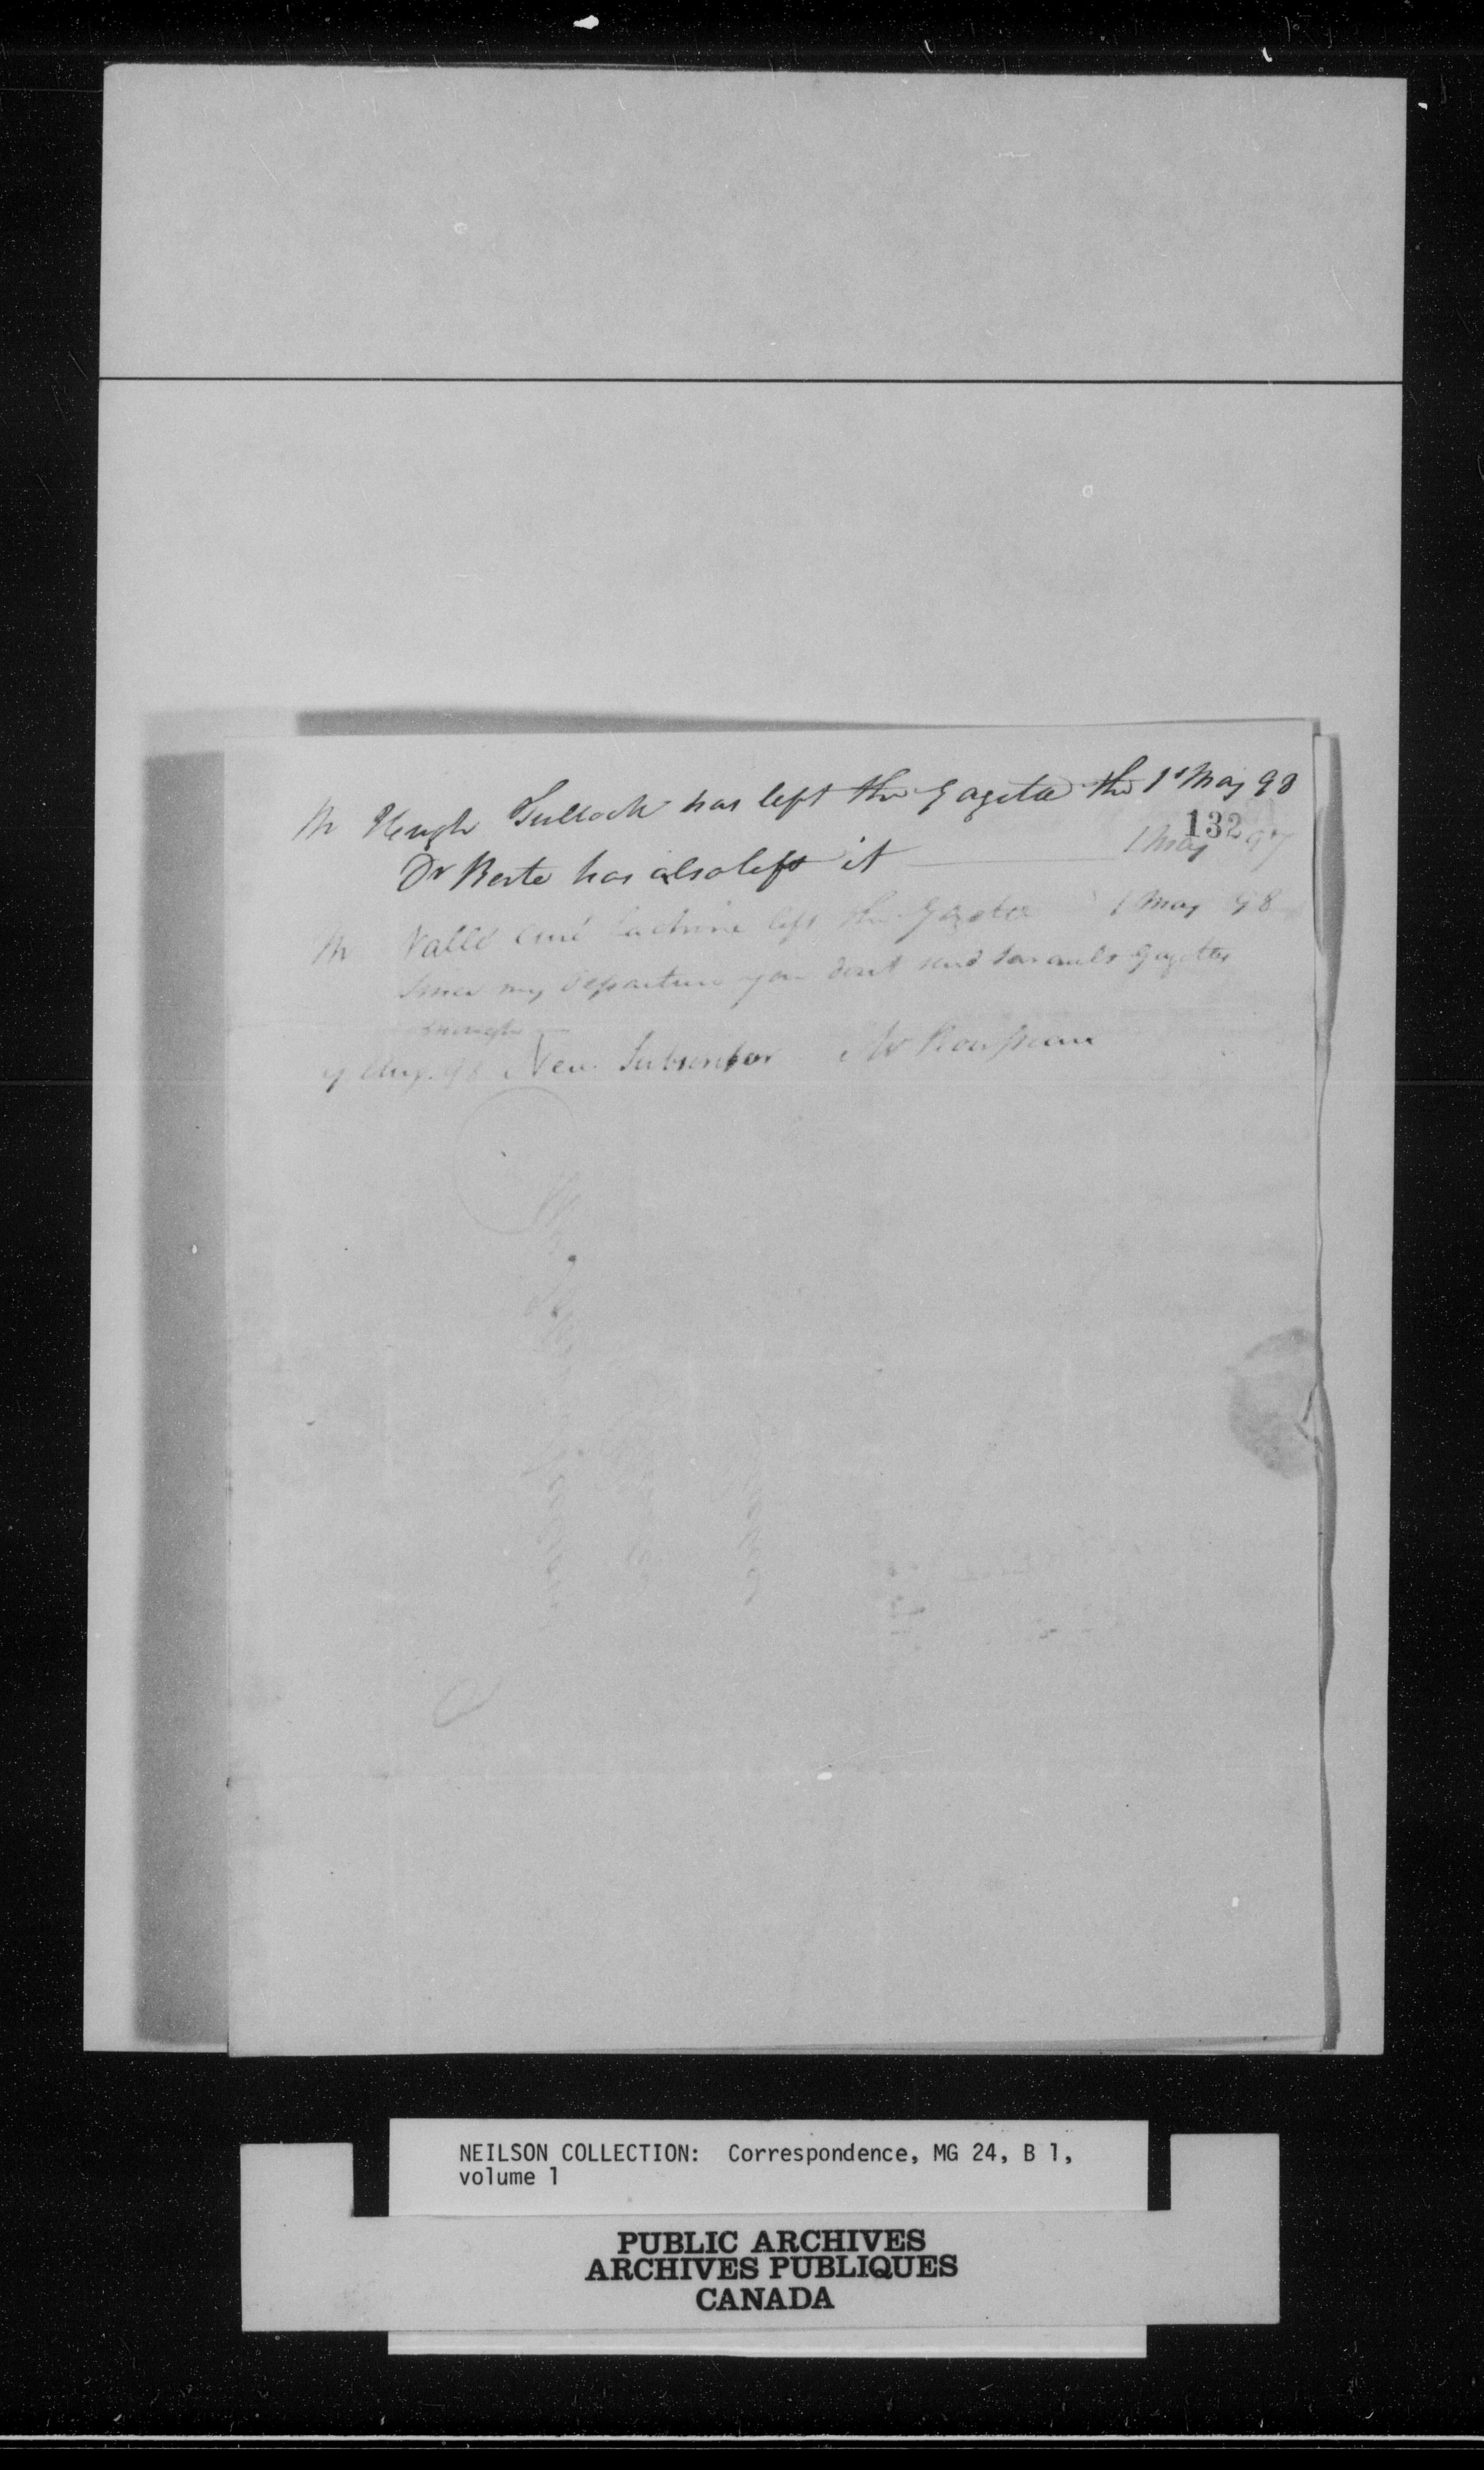 Mr Heugh Tullock has left the Gazette the 1st May 98
132
Dr Berte has also left it 1 May 97
Mr Vallé Curé Lachine left the Gazette 1 May 98
Since my Departure you dont send Gazettes
enough
Aug 98 New Subscriber Mr Rousseau
NEILSON COLLECTION: Correspondence, MG 24, B 1,
volume 1
PUBLIC ARCHIVES
ARCHIVES PUBLIQUES
CANADA